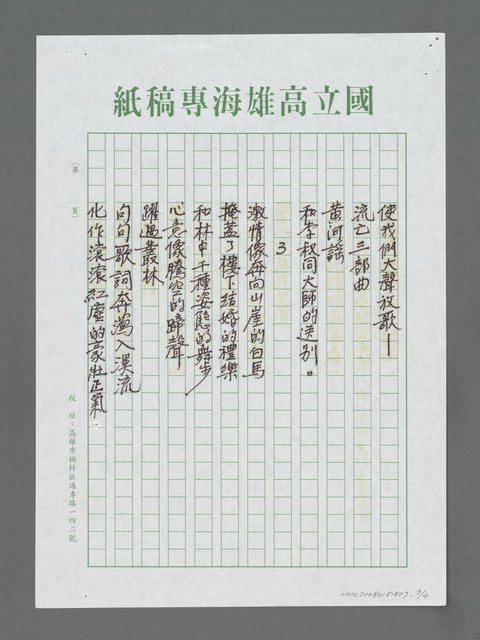 國立高雄海專稿紙
使我們大聲放歌—
流亡三部曲
黄河謠
和李叔同大師的送别。
3
激情像奔向山崖的白馬
掩蓋了樓下结婚的禮樂
和林中千種姿態的舞步
心意像騰空的蹄聲
躍過叢林
句句歌詞奔瀉入溪流
化作滾滾紅塵的豪壯正氣。
（第　頁）
校址：高雄市楠梓區海專路一四二號
NMTL20080181807. 3/4